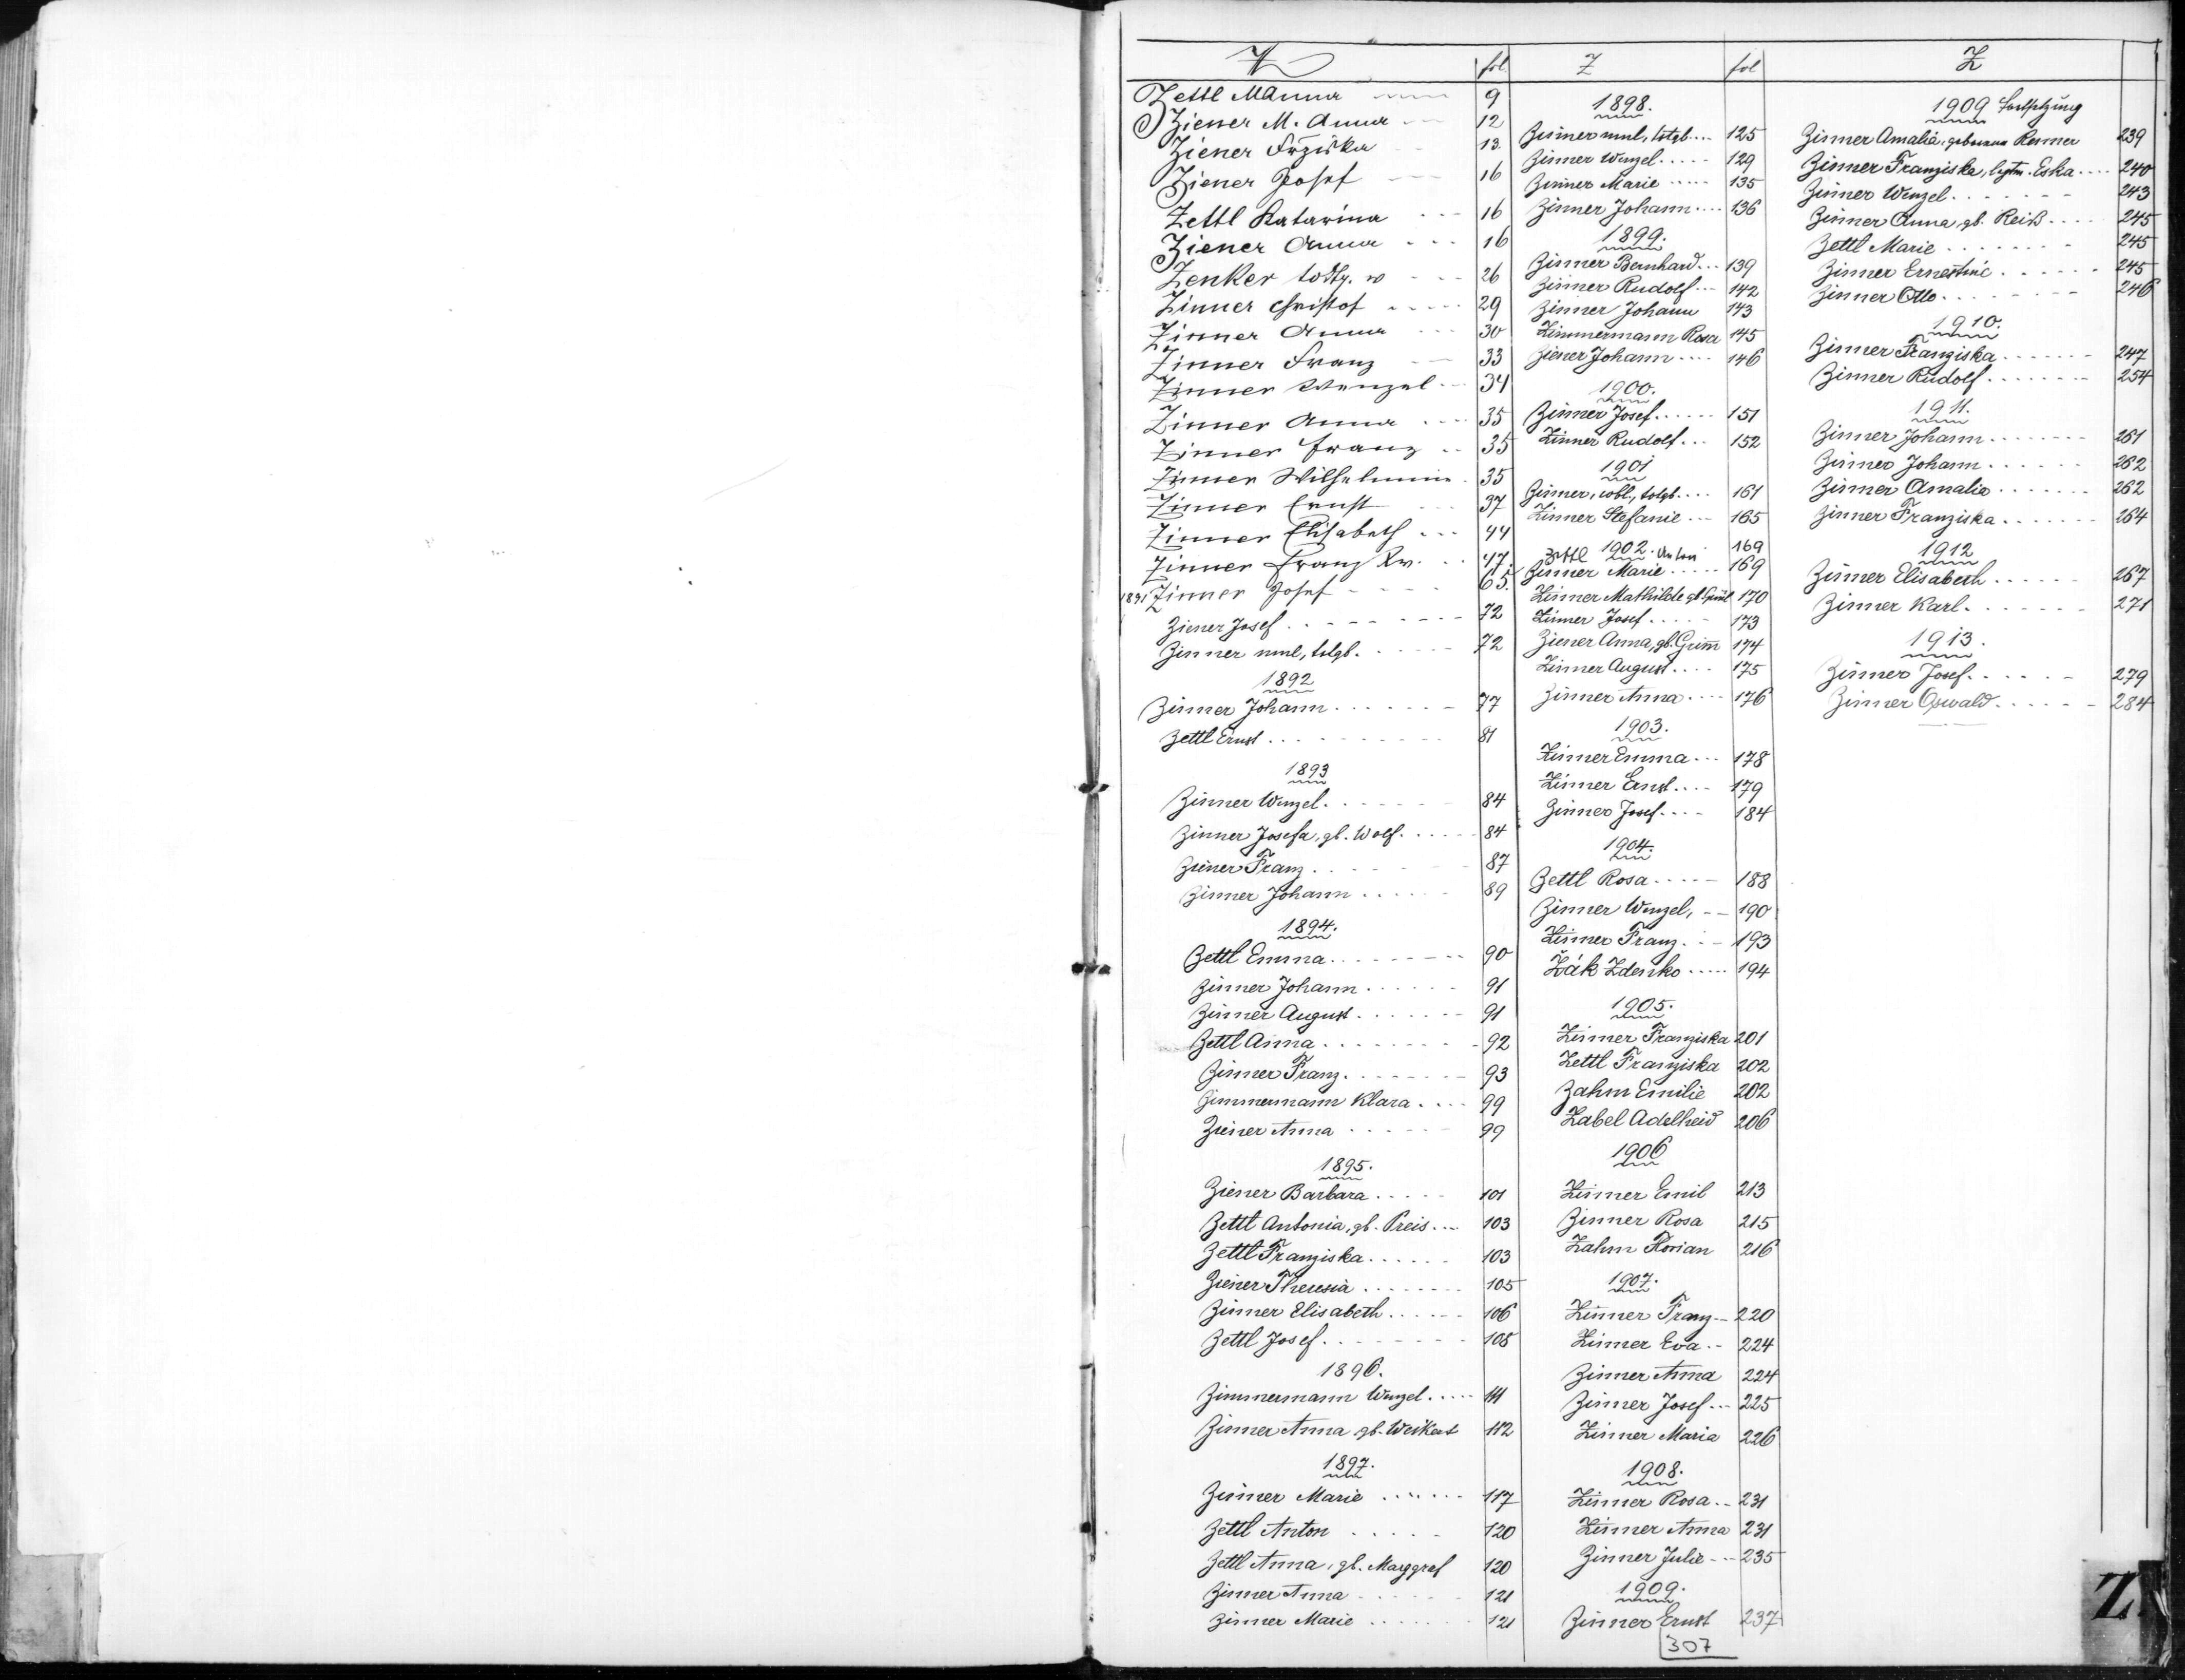 Z fol.
Zettl M Anna 9
Ziener M. Anna 12
Ziener Frziska 13
Ziener Josef 16
Zettl Katarina 16
Ziener Anna 16
Zenker todtg. 26
Zinner Christof 29
Zinner Anna 30
Zinner Franz 33
Zinner Wenzel 34
Zinner Anna 35
Zinner Franz 35
Zinner Wilhelmine 35
Zinner Ernst 37
Zinner Elisabeth 44
Zinner Franz 47.
1891 Zinner Josef 65.
Ziener Josef 72
Zinner mnl, totgb. 72
1892
Zinner Johann 77
Zettl Ernst 81
1893
Zinner Wenzel 84
Zinner Josefa, gb. Wolf 84
Ziener Franz 87
Zinner Johann 89
1894.
Zettl Emma 90
Zinner Johann 91
Zinner August 91
Zettl Anna 92
Zinner Franz 93
Zimmermann Klara 99
Ziener Anna 99
1895.
Ziener Barbara 101
Zettl Antonia, gb. Preis 103
Zettl Franziska 103
Ziener Theresia 105
Zinner Elisabeth 106
Zettl Josef 108
1896.
Zimmermann Wenzel 111
Zinner Anna gb. Weikert 112
1897.
Zinner Marie 117
Zettl Anton 120
Zettl Anna, gb. Marggraf 120
Zinner Anna 121
Zinner Marie 121
Z fol
1898.
Zinner mnl, totgb. 125
Zinner Wenzel 129
Zinner Marie 135
Zinner Johann 136
1899.
Zinner Bernhard 139
Zinner Rudolf 142
Zinner Johann 143
Zimmermann Rosa 145
Ziener Johann 146
1900.
Zinner Josef 151
Zinner Rudolf 152
1901
Zinner, wbl, totgb. 161
Zinner Stefanie 165
Zettl 1902. Anton 169
Zinner Marie 169
Zinner Mathilde gb. 170
Zinner Josef 173
Ziener Anna, gb. Grim̅ 174
Zinner August 175
Zinner Anna 176
1903.
Zinner Emma 178
Zinner Ernst 179
Zinner Josef 184
1904.
Zettl Rosa 188
Zinner Wenzel, 190
Zinner Franz 193
Žák Zdenko 194
1905.
Zinner Franziska 201
Zettl Franziska 202
Zahm Emilie 202
Zabel Adelheid 206
1906
Zinner Emil 213
Zinner Rosa 215
Zahm Florian 216
1907.
Zinner Franz 220
Zinner Eva 224
Zinner Anna 224
Zinner Josef 225
Zinner Maria 226
1908.
Zinner Rosa 231
Zinner Anna 231
Zinner Julie 235
1909.
Zinner Ernst 237
307
Z
1909 Fortsetzung
Zinner Amalia, geborene Renner 239
Zinner Franziska, legtm. Eska 240
Zinner Wenzel 243
Zinner Anna, gb. Reiß 245
Zettl Marie 245
Zinner Ernestine 245
Zinner Otto 246
1910.
Zinner Franziska 247
Zinner Rudolf 254
1911.
Zinner Johann 261
Zinner Johann 262
Zinner Amalie 262
Zinner Franziska 264
1912
Zinner Elisabeth 267
Zinner Karl 271
1913.
Zinner Josef 279
Zinner Oswald 284
Z.